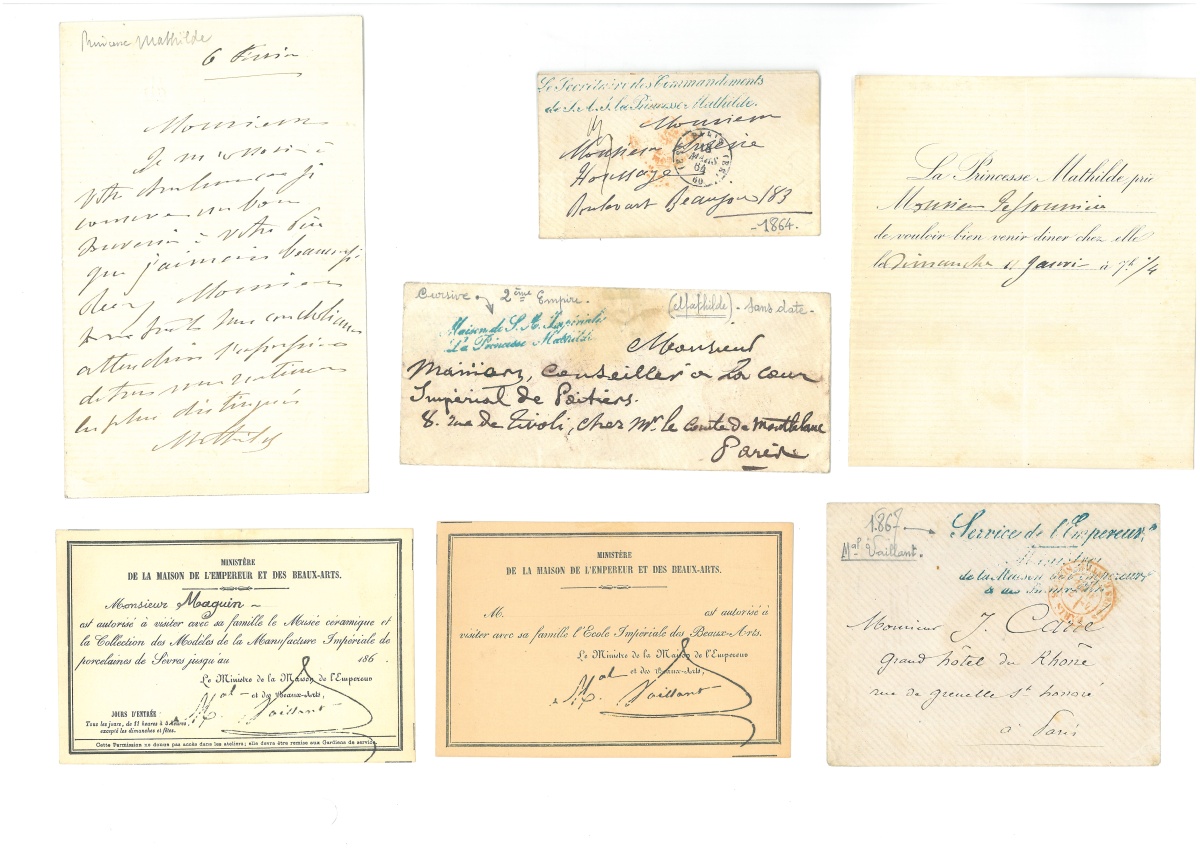 Princesse Mathilde
6
Monsieur
Je m'associe à
votre
conserve un bon
souvenir à votre
que j'aimais
Monsieur
mes condoléances
l'expression
de tous mes
les plus distingués
Mathilde
Le Secrétaire des Commandements
de S. A. I. la Princesse Mathilde.
Monsieur
Monsieur
Houssaye
Boulevart Beaujon 183
MARS
64
60
- 1864.
La Princesse Mathilde prie
Monsieur
de vouloir bien venir dîner chez elle
le Dimanche à 7h 1/4
Cursive 2ème Empire. (Mathilde) - sans date -
Maison de S. A. Impériale
La Princesse Mathilde
Monsieur
conseiller à la cour
Impérial de Poitiers.
8. rue de Tivoli, chez Mr. le comte de Montblanc
Paris
MINISTÈRE
DE LA MAISON DE L'EMPEREUR ET DES BEAUX-ARTS.
Monsieur Maguin
est autorisé à visiter avec sa famille le Musée céramique et
la Collection des Modèles de la Manufacture Impériale de
porcelaines de Sèvres jusqu'au 186 .
Le Ministre de la Maison de l'Empereur
et des Beaux-Arts,
Mal Vaillant
JOURS D'ENTRÉE
Tous les jours, de 11 heures à 5 heures,
excepté les dimanches et fêtes.
Cette Permission ne donne pas accès dans les ateliers; elle devra être remise aux Gardiens de service.
MINISTÈRE
DE LA MAISON DE L'EMPEREUR ET DES BEAUX-ARTS.
M. est autorisé à
visiter avec sa famille l'Ecole Impériale des Beaux-Arts.
Le Ministre de la Maison de l'Empereur
et des Beaux-Arts,
Mal Vaillant
1867 Service de l'Empereur
Mal Vaillant.
Ministre
de la Maison de l'Empereur
& des Beaux-Arts
Monsieur J Carre
grand hôtel du Rhône
rue de grenelle St honoré
à Paris